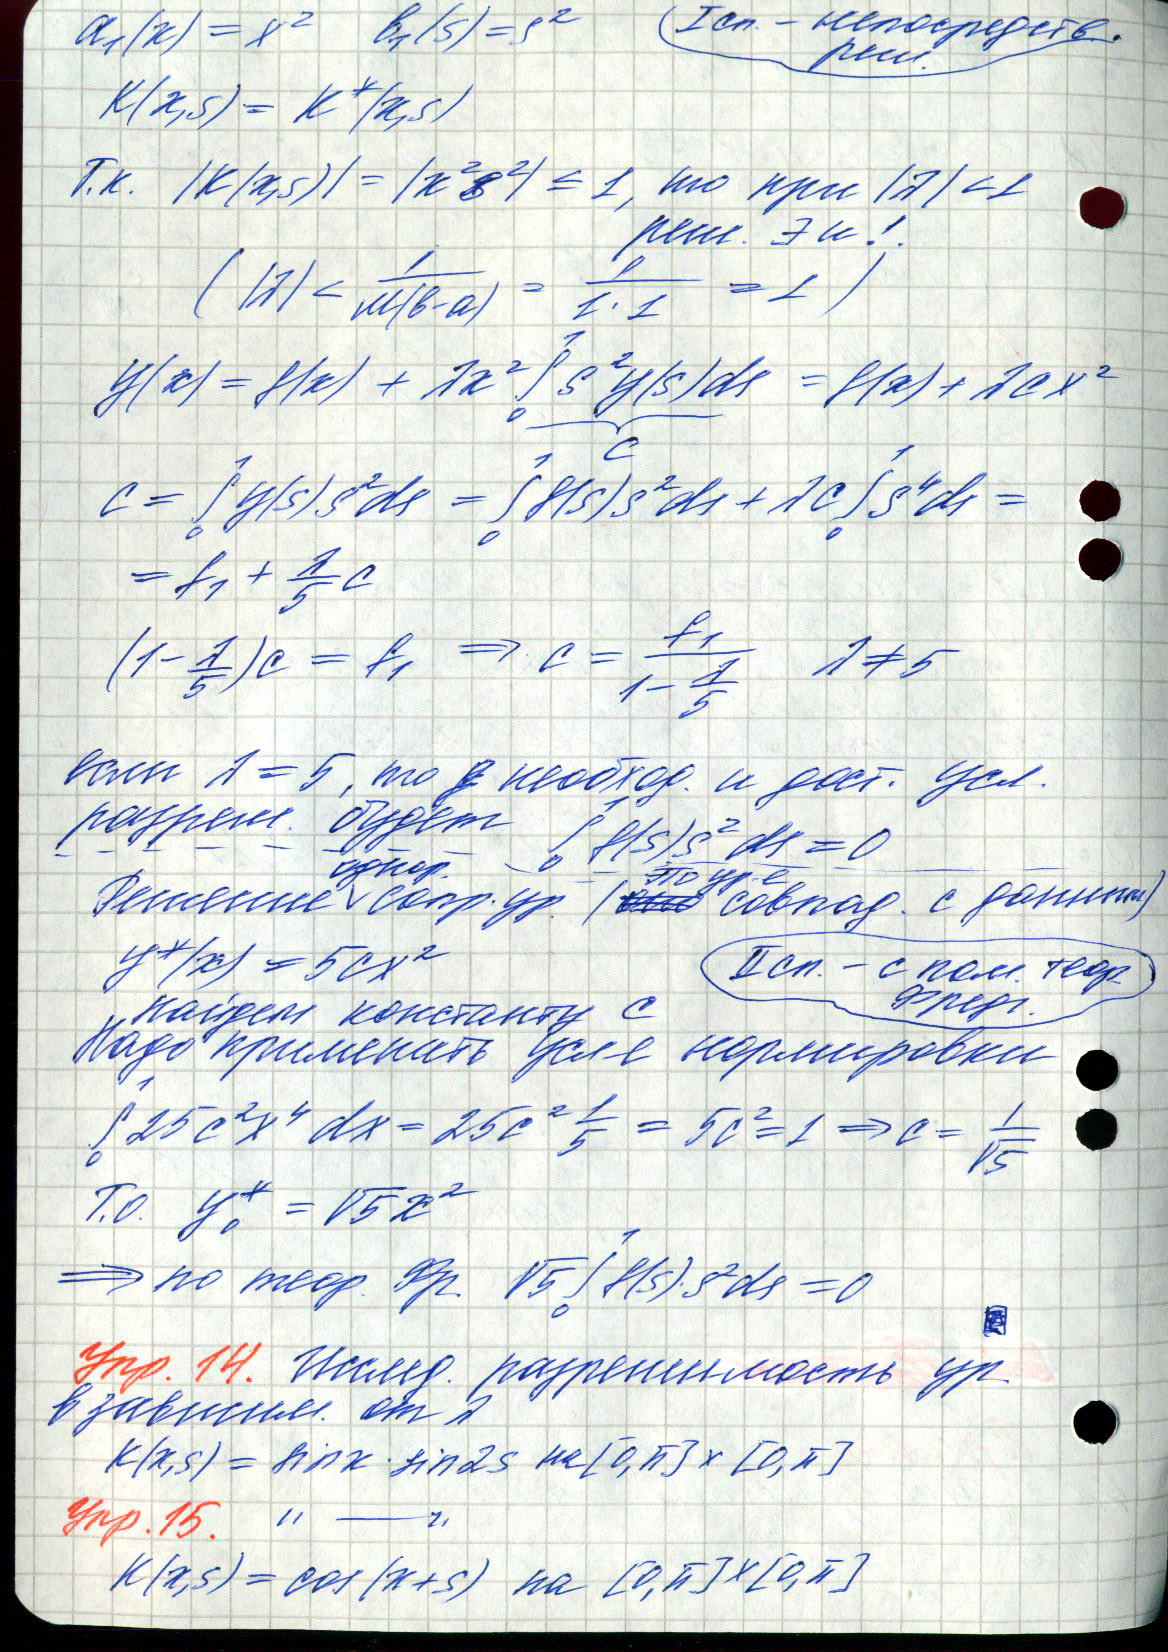 a₁(x) = x² b₁(s) = s² (I сп. – непосредств.
реш.)
K(x,s) = K*(x,s)
Т.к. |K(x,s)| = |x²s²| ≤ 1, то при |λ| < 1
реш. ∃ и !.
( |λ| < 1/(M(b-a)) = 1/(1·1) = 1 )
y(x) = f(x) + λx² ∫₀¹ s²y(s)ds = f(x) + λcx²
c
c = ∫₀¹ y(s)s²ds = ∫₀¹ f(s)s²ds + λc ∫₀¹ s⁴ds =
= f₁ + λ/5 c
(1 - λ/5)c = f₁ ⟹ c = f₁/(1 - λ/5) λ ≠ 5
если λ = 5, то необход. и дост. усл.
разреш. будет ∫₀¹ f(s)s²ds = 0
однор. это ур-е
Решение сопр. ур. ( совпад. с данным)
y*(x) = 5cx² II сп. – с пом. теор.
Фред.
найдем константу c
Надо применить усл-е нормировки
∫₀¹ 25c²x⁴ dx = 25c² 1/5 = 5c² = 1 ⟹ c = 1/√5
Т.о. y₀* = √5x²
⟹ по теор. Фр. √5 ∫₀¹ f(s)·s²ds = 0
Упр. 14. Исслед. разрешимость ур.
в зависим. от λ
K(x,s) = sinx · sin2s на [0,π] × [0,π]
Упр. 15. " — "
K(x,s) = cos(x+s) на [0,π]×[0,π]